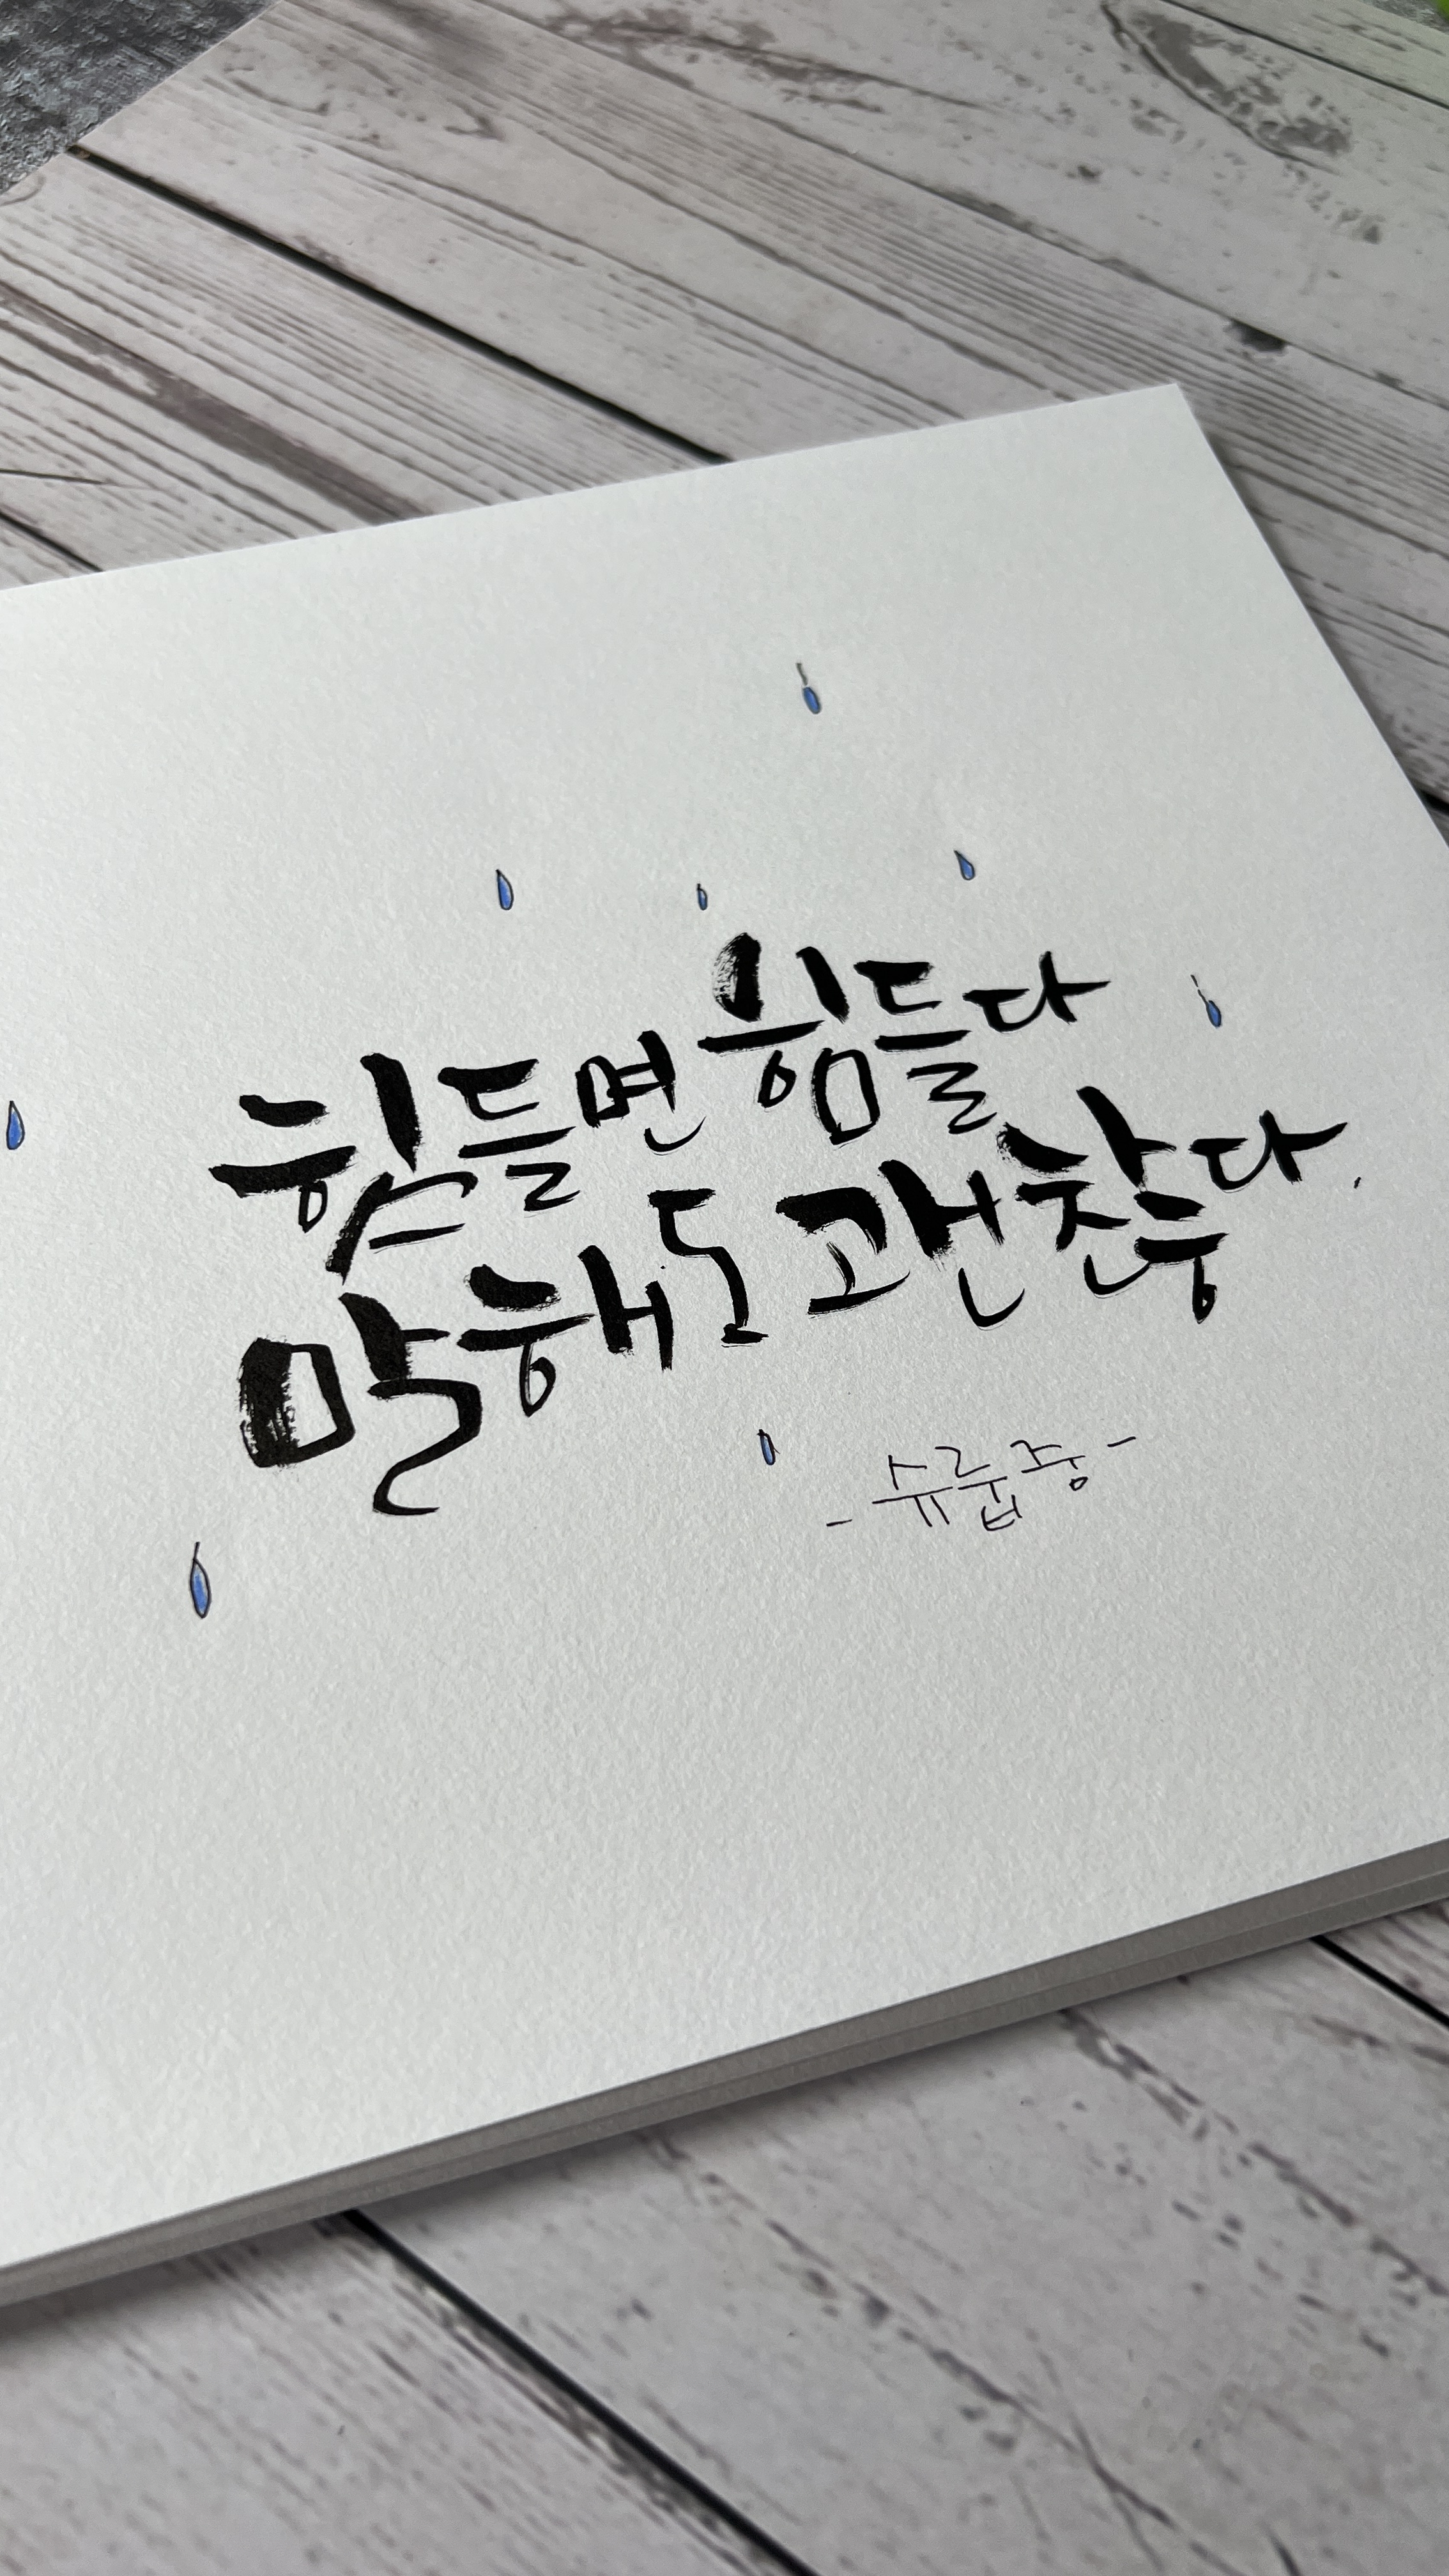 힘들면 힘들다
말해도 괜찮다.
- 슈룹 중 -